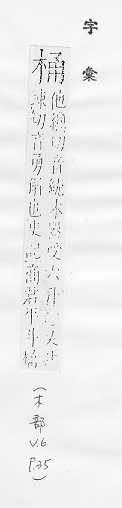 字彙
桶
他緫切音統木器受六升
又大
音勇斛也史記商君平斗桶
(木部
V.6
P.25)